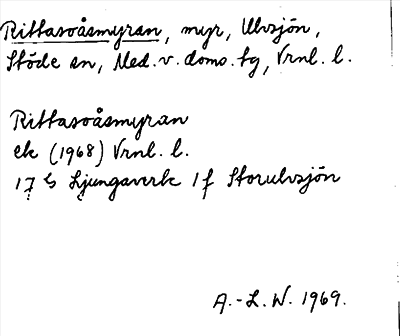 Rittasoåsmyran, myr, Ulvsjön,
Stöde sn, Med. v. doms. tg, Vrnl. l.
Rittasoåsmyran
ek (1968) Vrnl. l.
17 G Ljungaverk 1 f Storulvsjön
A.-L. W. 1969.